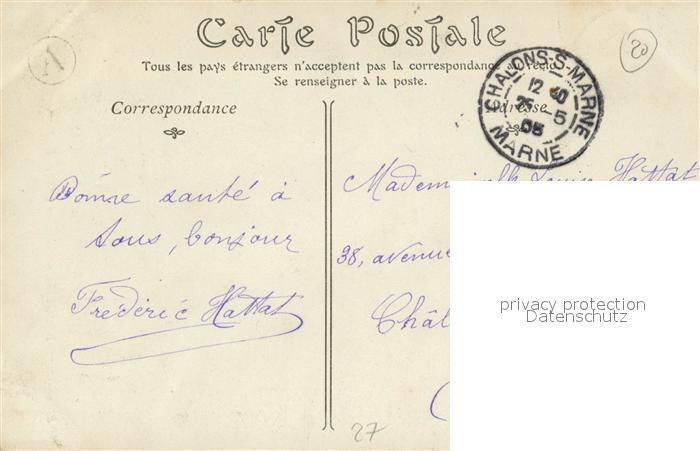 Carte Postale
Tous les pays étrangers n'acceptent pas la correspondance au recto
Se renseigner à la poste.
Correspondance
Adresse
CHALONS-S-MARNE
12 30
25 -5
05
MARNE
A
20
Bonne santé à
tous, bonjour
Frédéric Hattat
Mademoiselle Louise Hattat
38, avenue
Châl
27
privacy protection
Datenschutz